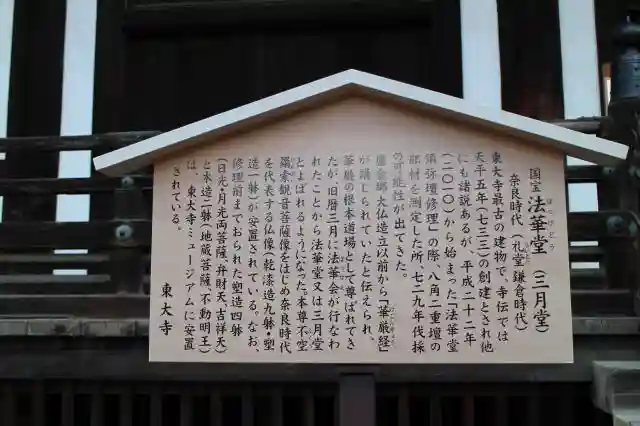 国宝 法華堂（三月堂）
ほっけどう
奈良時代（礼堂 鎌倉時代）
東大寺最古の建物で、寺伝では
天平五年（七三三）の創建とされ他
にも諸説あるが、平成二十二年
（二〇一〇）から始まった「法華堂
須弥壇修理」の際、八角二重壇の
部材を測定した所七二九年伐採
の可能性が出てきた。
盧舎那大仏造立以前から「華厳経」
が講じられていたと伝えられ、
華厳の根本道場として尊ばれてき
たが、旧暦三月に法華会が行なわ
れたことから法華堂又は三月堂
とよばれるようになった。本尊不空
羂索観音菩薩像をはじめ奈良時代
を代表する仏像（乾漆造九躰・塑
造一躰）が安置されている。なお、
修理前までおられた塑造四躰
（日光・月光両菩薩、弁財天、吉祥天）
と木造二躰（地蔵菩薩、不動明王）
は、東大寺ミュージアムに安置
されている。
東大寺